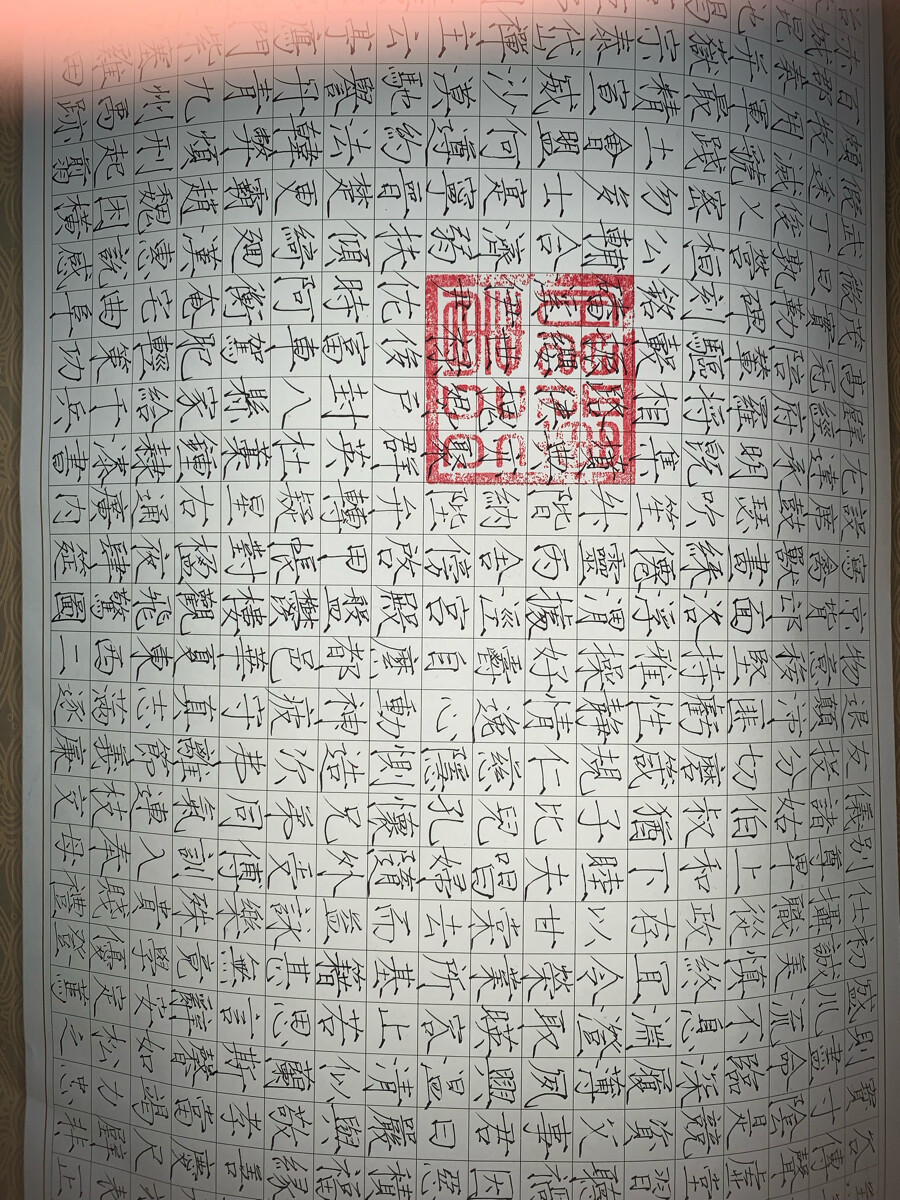 谷傳聲虛堂習聽禍因惡積福緣善慶尺璧非
寶寸陰是競資父事君曰嚴與敬孝當竭力忠
則盡命臨深履薄夙興溫清似蘭斯馨如松之
盛川流不息淵澄取暎容止若思言辭安定篤
初誠美慎終宜令榮業所基籍甚無竟學優登
仕攝職從政存以甘棠去而益詠樂殊貴賤禮
別尊卑上和下睦夫唱婦隨外受傅訓入奉母
儀諸姑伯叔猶子比兒孔懷兄弟同氣連枝交
友投分切磨箴規仁慈隱惻造次弗離節義廉
退顛沛匪虧性靜情逸心動神疲守真志滿逐
物意移堅持雅操好爵自縻都邑華夏東西二
京背邙面洛浮渭據涇宮殿盤鬱樓觀飛驚圖
寫禽獸畫綵僊靈丙舍傍啟甲帳對楹夜肆筵
設席鼓瑟吹笙升階納陛弁轉疑星右通廣內
左達承明既集墳典亦聚群英杜稾鍾隸漆書
壁經府羅將相路俠槐卿戶封八縣家給千兵
高冠陪輦驅轂振纓世祿侈富車駕肥輕策功
茂實勒碑刻銘磻溪伊尹佐時阿衡奄宅曲阜
微旦孰營桓公輔合濟弱扶傾綺迴漢惠說感
武丁俊乂密勿多士寔寧晉楚更霸趙魏困橫
假途滅虢踐土會盟何遵約法韓弊煩刑起翦
頗牧用軍最精宣威沙漠馳譽丹青九州禹跡
百郡秦并嶽宗泰岱禪主云亭鴈門紫塞雞田
赤城昆池碣